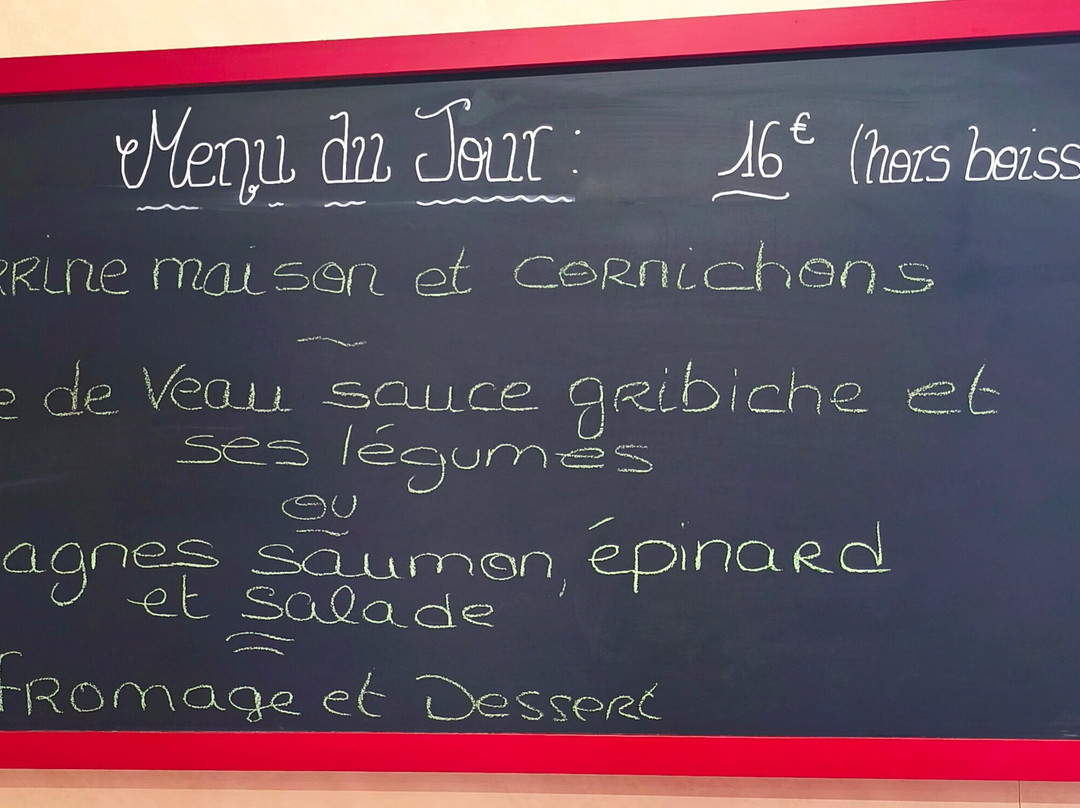 Menu du Jour : 16€ (hors boiss
rrine maison et cornichons
e de Veau sauce gribiche et
ses légumes
ou
agnes saumon, épinard
et salade
fromage et Dessert